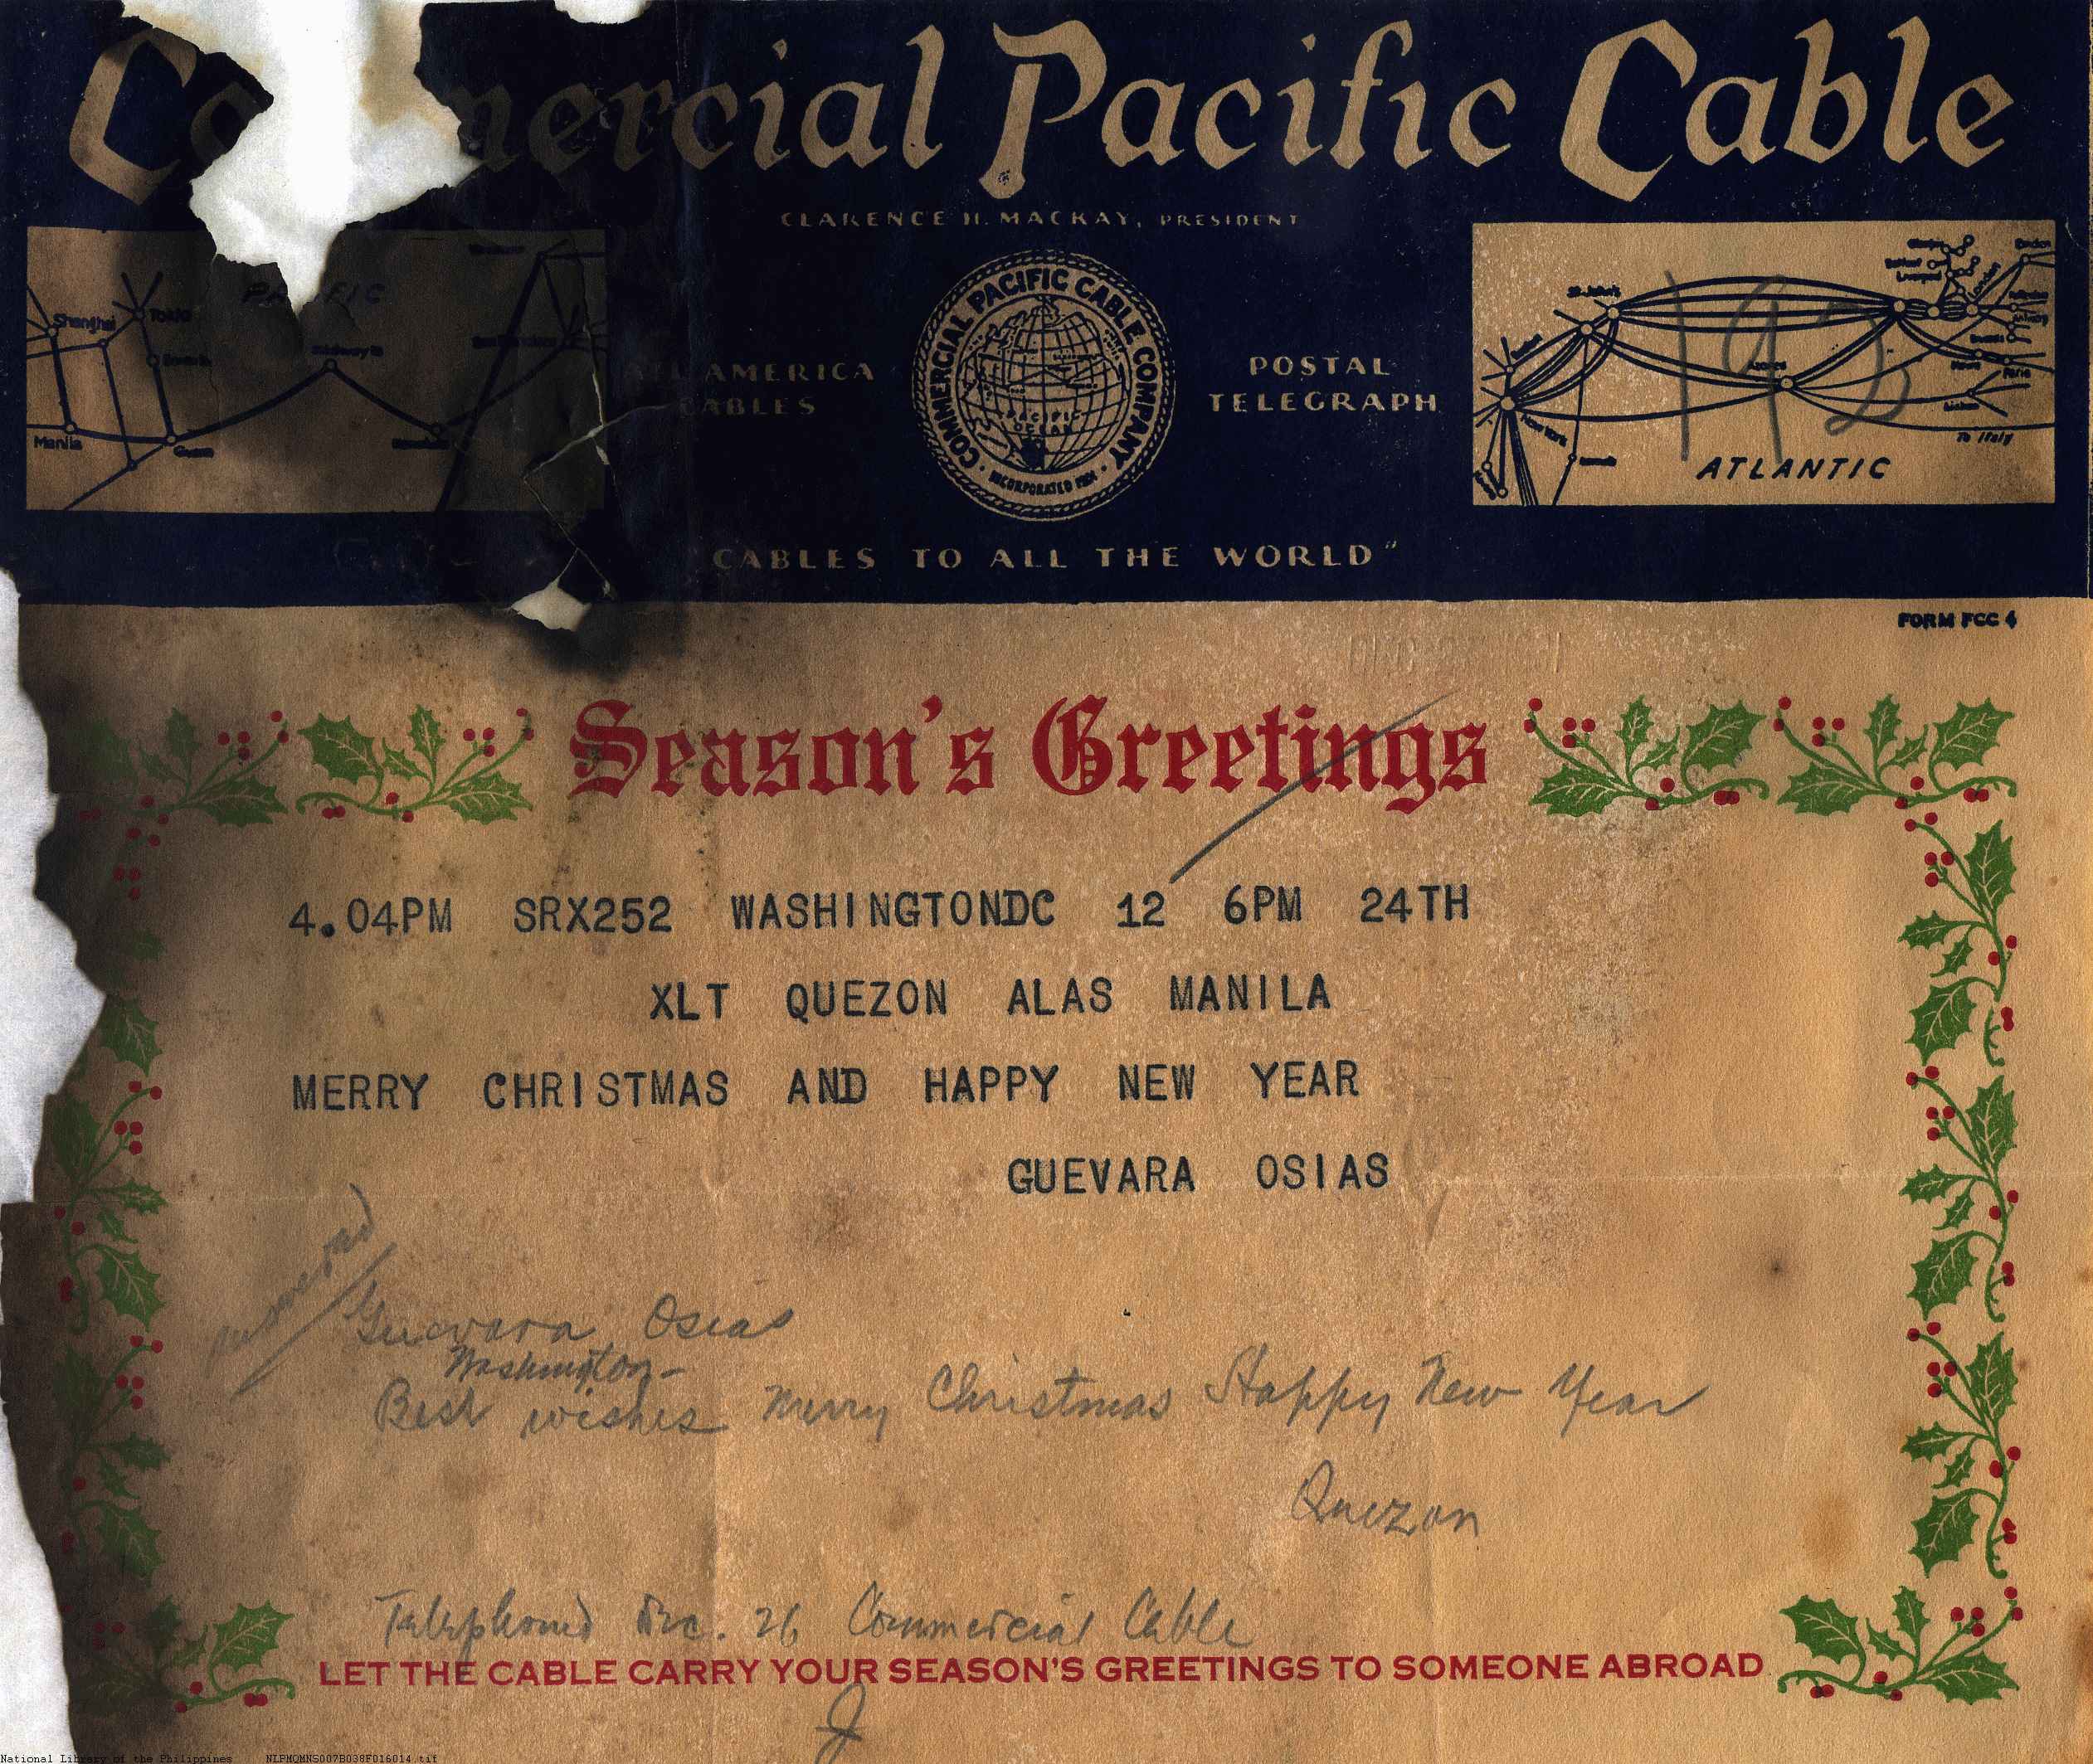 Commercial Pacific Cable
CLARENCE H. MACKAY, PRESIDENT
PACIFIC
Shanghai
Tokio
Midway Is
Manila
Guam
ALL AMERICA
CABLES
COMMERCIAL PACIFIC CABLE COMPANY
PACIFIC
OCEAN
INCORPORATED 1901
POSTAL
TELEGRAPH
St. John's
Azores
New York
Liverpool
To Italy
ATLANTIC
192
CABLES TO ALL THE WORLD"
FORM FCC 4
Season's Greetings
4.04PM SRX252 WASHINGTONDC 12 6PM 24TH
XLT QUEZON ALAS MANILA
MERRY CHRISTMAS AND HAPPY NEW YEAR
GUEVARA OSIAS
answered
Guevara Osias
Washington-
Best wishes Merry Christmas Happy New Year
Quezon
Telephoned Dec. 26 Commercial Cable
LET THE CABLE CARRY YOUR SEASON'S GREETINGS TO SOMEONE ABROAD
National Library of the Philippines NLPMQMNS007B038F016014.tif